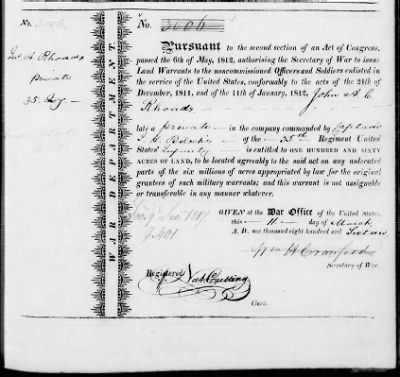 No. 3006
No. 3006
A. Rhoads
private
35. Reg
WAR DEPARTMENT
Pursuant to the second section of an Act of Congress,
passed the 6th of May, 1812, authorising the Secretary of War to issue
Land Warrants to the noncommissioned Officers and Soldiers enlisted in
the service of the United States, conformably to the acts of the 24th of
December, 1811, and of the 11th of January, 1812, John A. C
Rhoads
late a private in the company commanded by Captain
of the 35th Regiment United
States Infantry is entitled to ONE HUNDRED AND SIXTY
ACRES OF LAND, to be located agreeably to the said act on any unlocated
parts of the six millions of acres appropriated by law for the original
grantees of such military warrants; and this warrant is not assignable
or transferable in any manner whatever.
GIVEN at the War Office of the United States,
this 11 day of March
A. D. one thousand eight hundred and Sixteen
Wm H Crawford
Secretary of War.
Registered
Clerk.